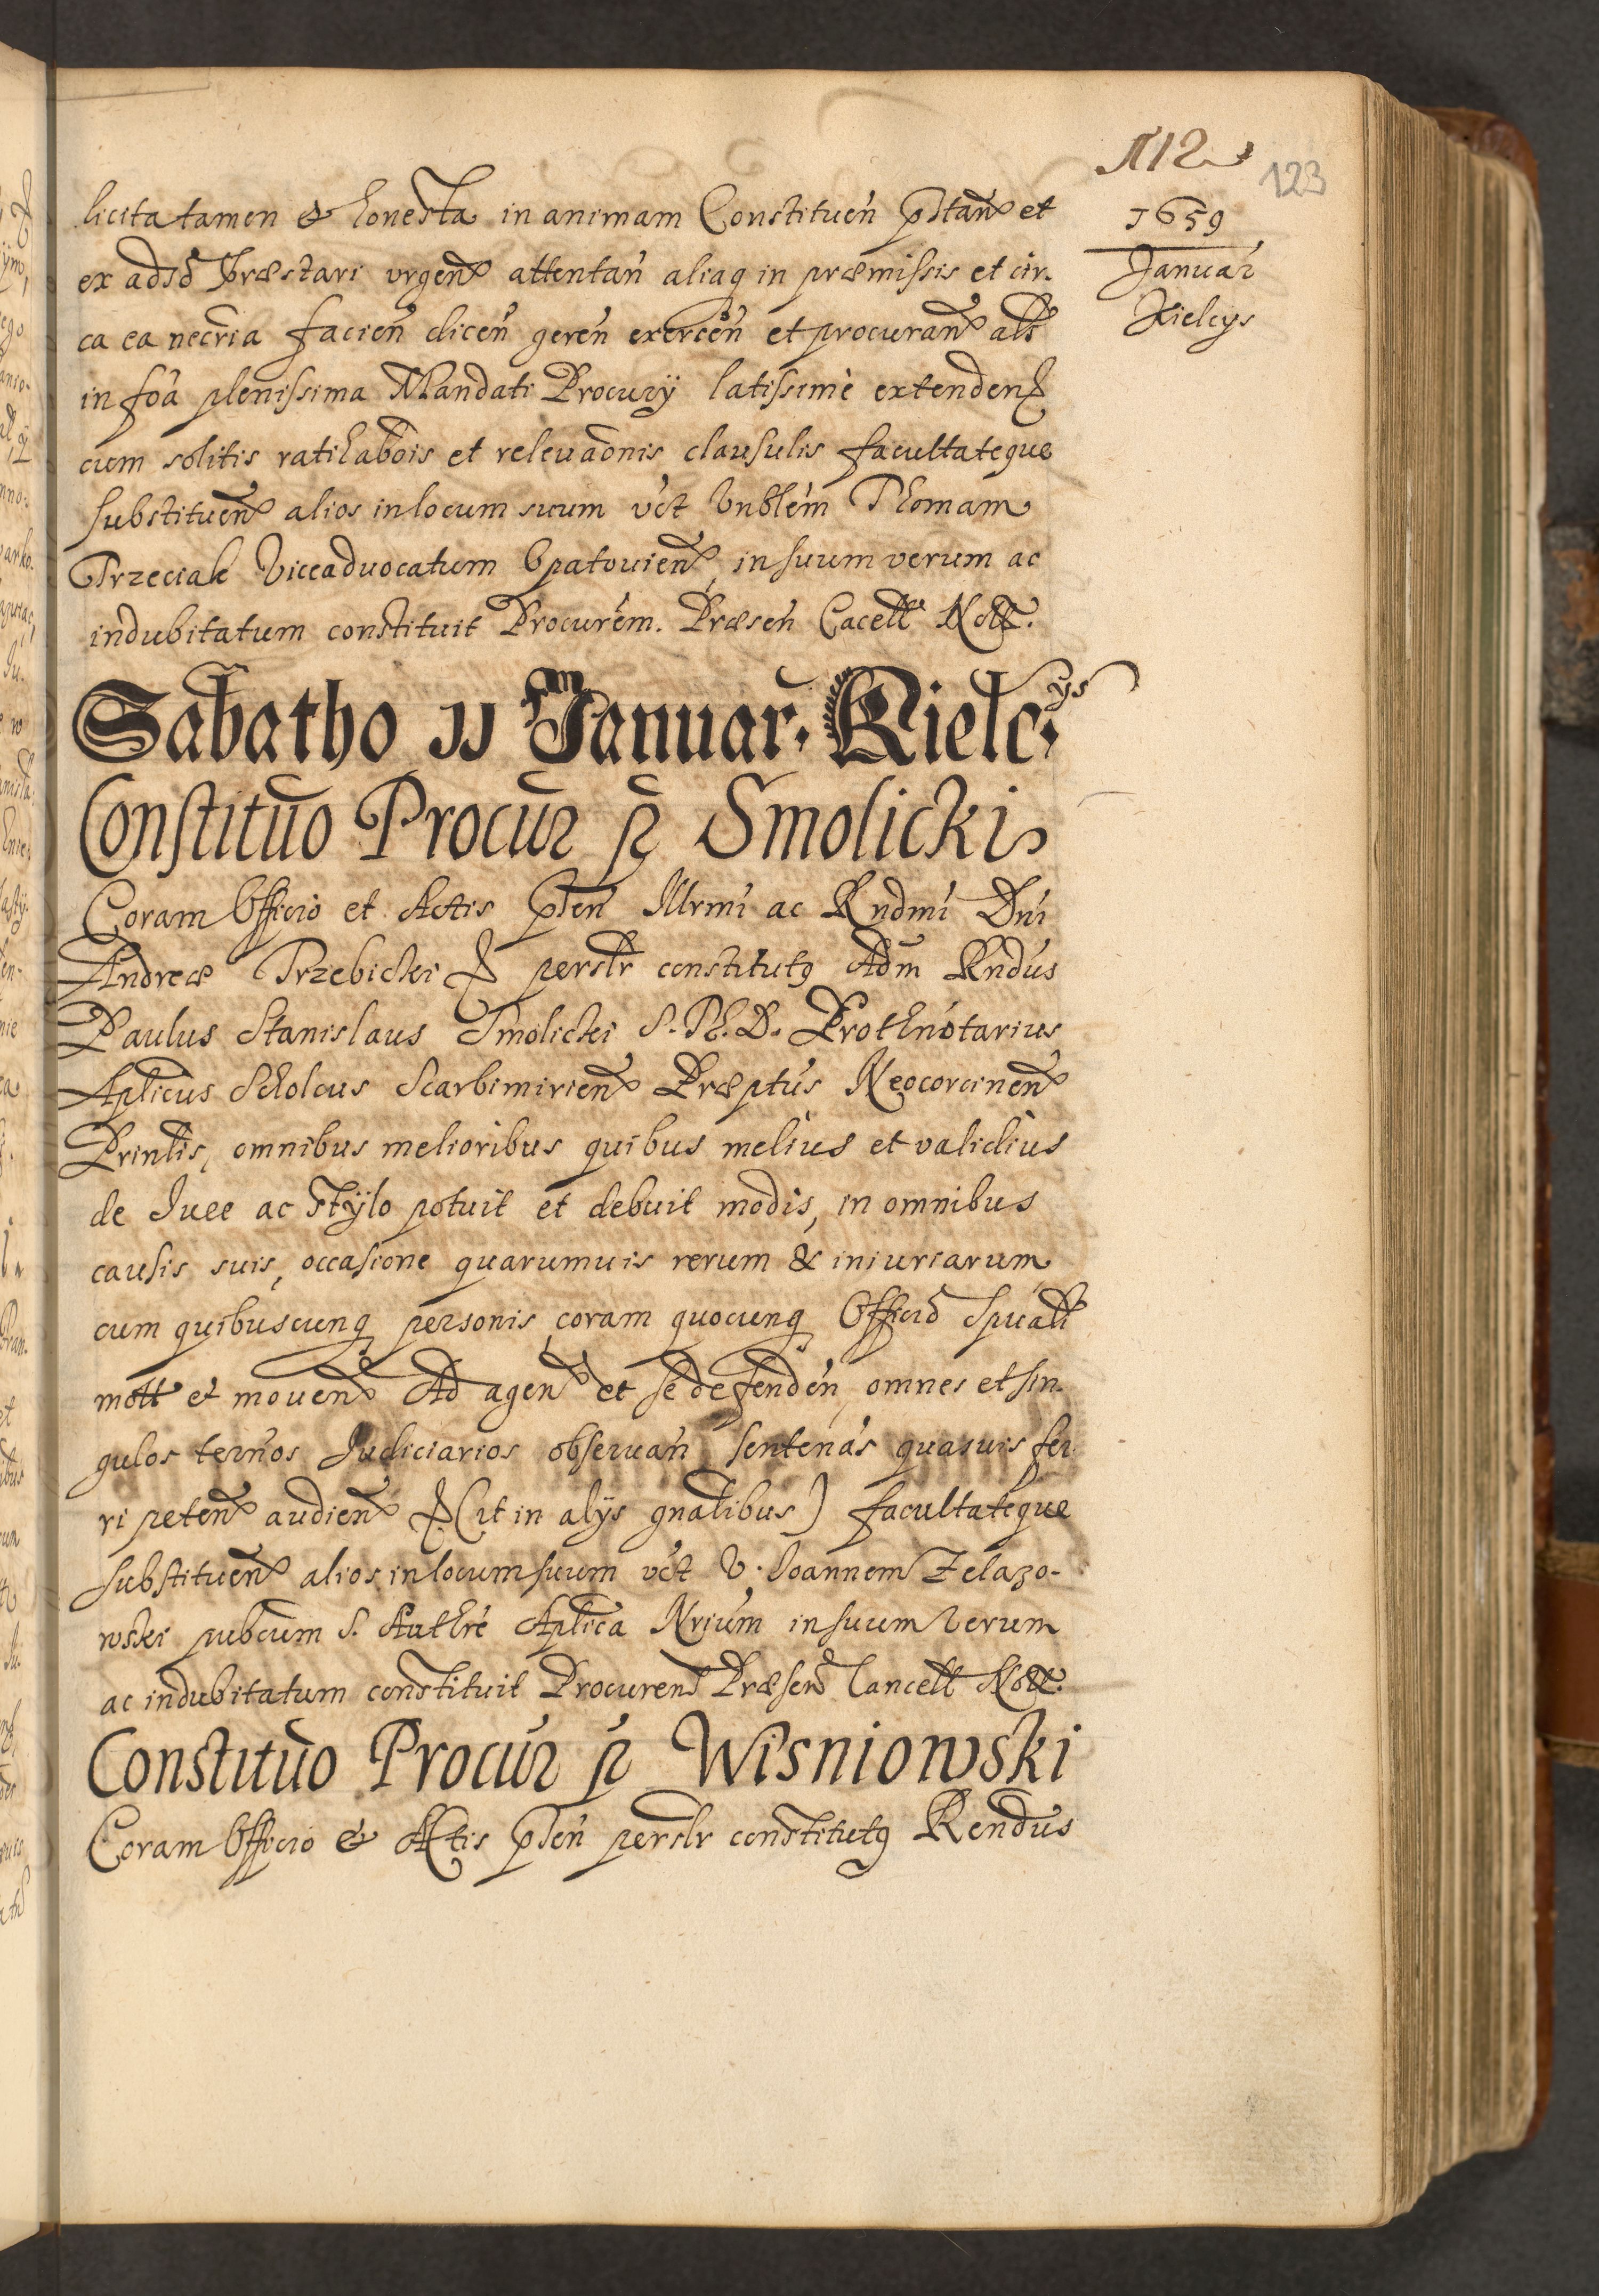 112
123
1659
Januar
Kielcys
licita tamen & honesta in animam Constituen pstan et
ex adso præstari urgen attentan aliaq in præmissis et cir-
ca ea necria facien dicen geren exercen et procuran als
in foa plenissima Mandati Procury latissime extenden
cum solitis ratihabois et relevaonis clausulis facultateque
substituen alios in locum suum vct Vnblem Thomam
Trzeciak Viceadvocatum Opatovien, in suum verum ac
indubitatum constituit Procurem. Præsen Cacell Nott.
Sabatho 11 Januar. Kielcys
Constituo Procur p Smolicki
Coram Officio et Actis pten Illrmi ac Rndmi Dni
Andreæ Trzebicki & perslr constitutq Adm Rndus
Paulus Stanislaus Smolicki S. Ph. D. Prothnotarius
Aplicus Scholcus Scarbimirien Præptus Neocorcinen
Prinlis, omnibus melioribus quibus melius et validius
de Iure ac stylo potuit et debuit modis, in omnibus
causis suis, occasione quarumuis rerum & iniuriarum
cum quibuscunq personis, coram quocunq Officio Spuali
mott et mouen Ad agen et se defenden, omnes et sin-
gulos ternos Judiciarios obseruan, sentenas quasuis fer-
ri peten audien & (ut in alys gnalibus) facultateque
substituen alios in locum suum vct V. Joannem Zelazo-
wski pubcum S. Authre Aplica Nrium in suum verum
ac indubitatum constituit Procurem Præsen Cancell Nott.
Constituo Procur p Wisniowski
Coram Officio & Actis pten perslr constitutq Rendus